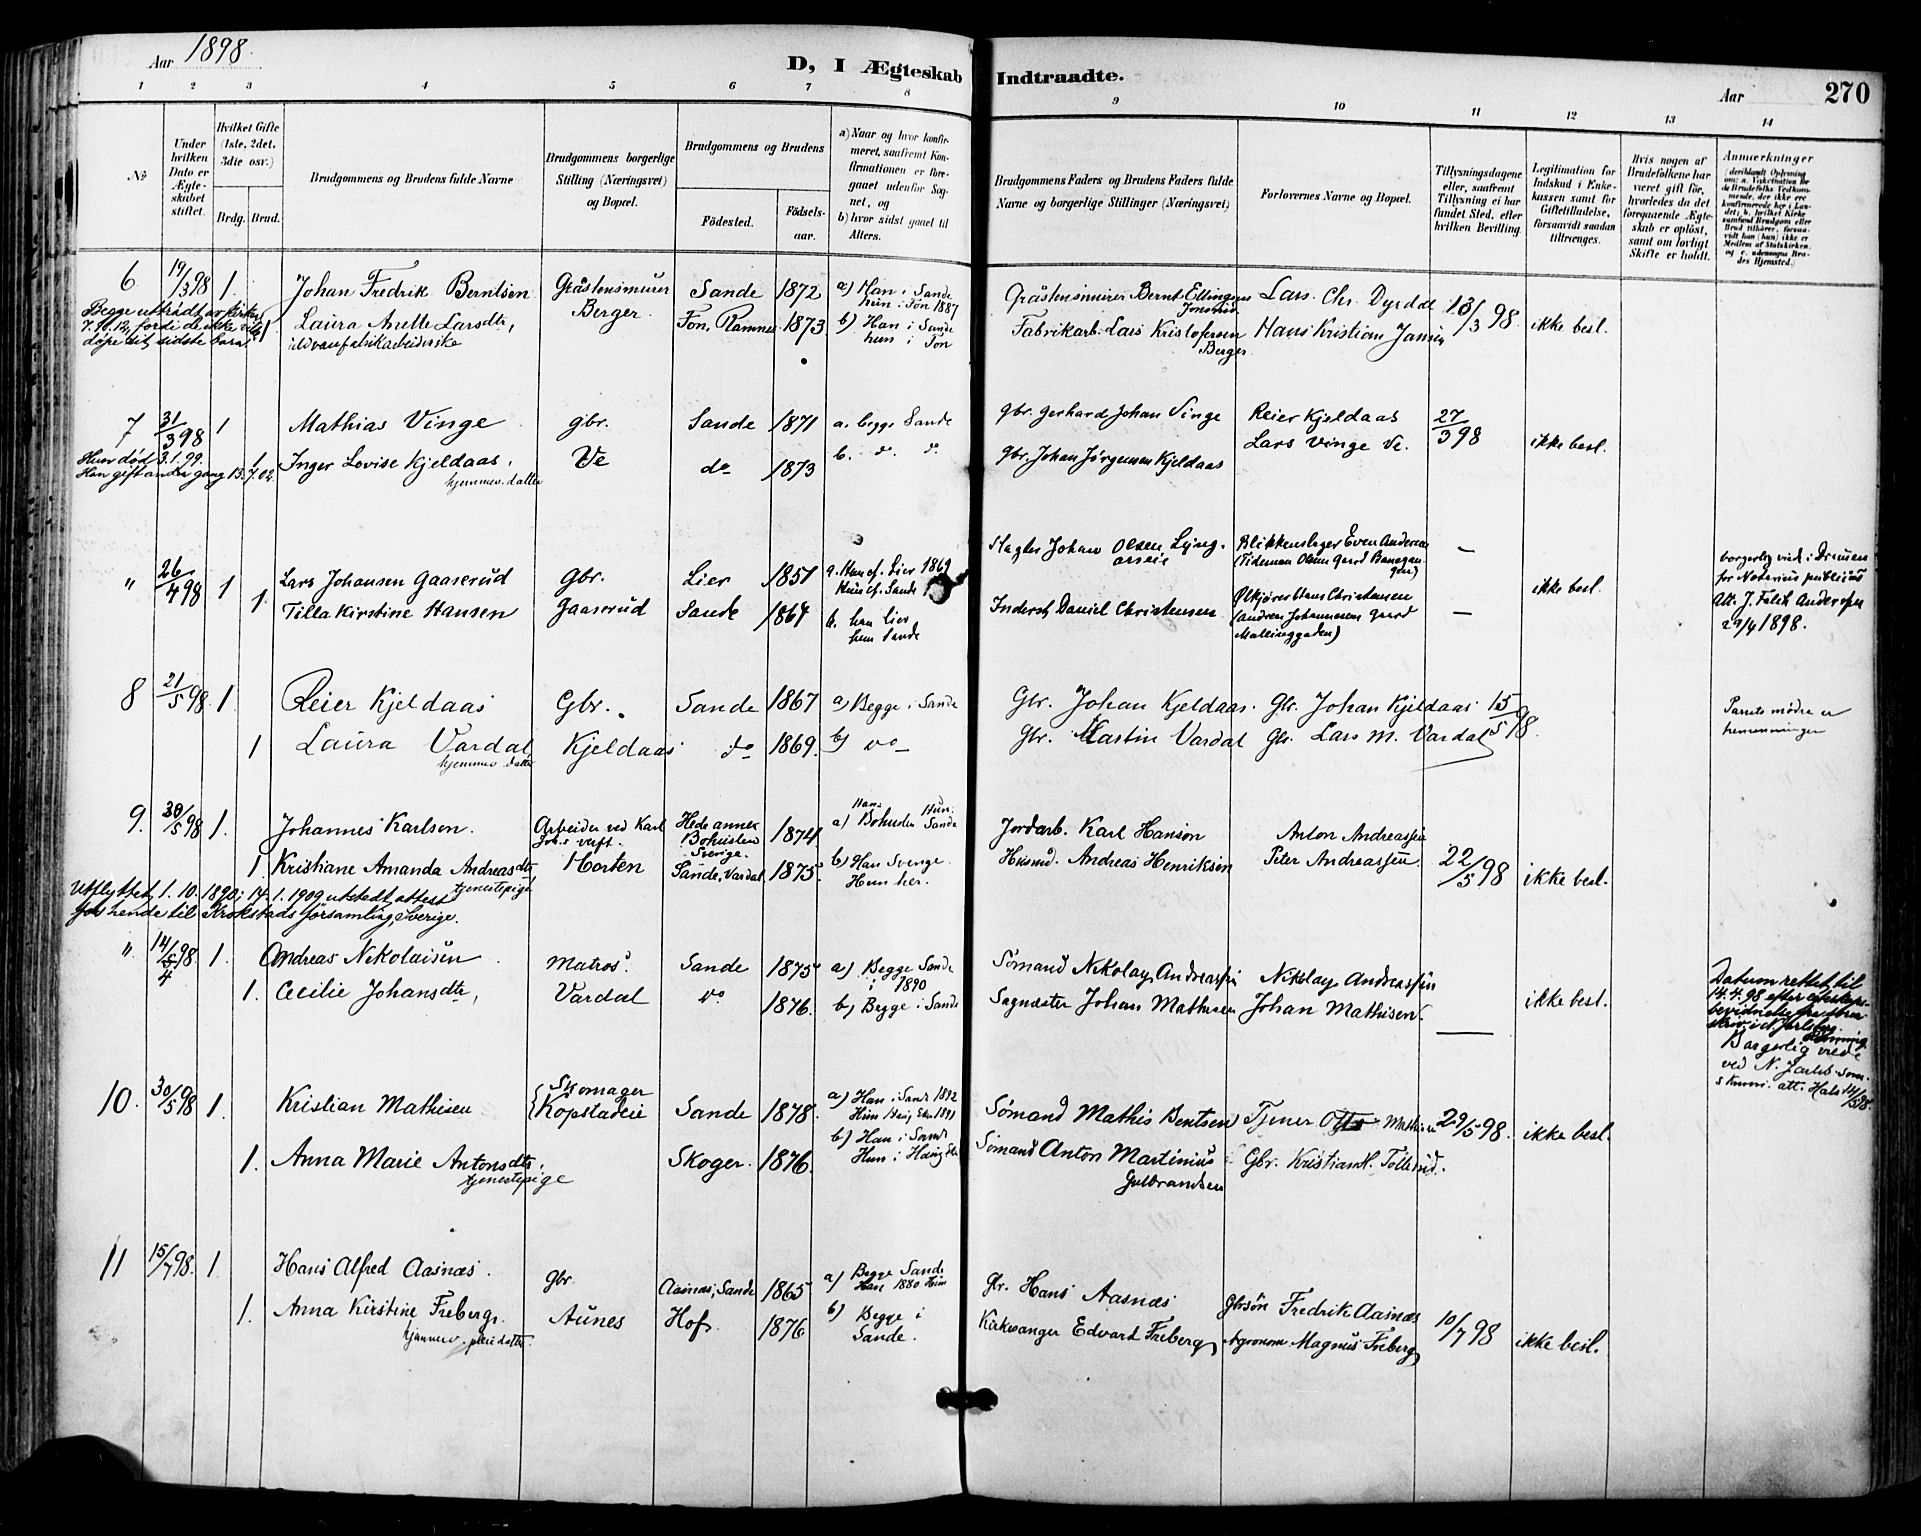 Aar 1898.
D, I Ægteskab Indtraadte.
Aar 270
1 2 3 4 5 6 7 8 9 10 11 12 13 14
No
Under hvilken Dato er Ægteskabet stiftet.
Hvilket Gifte (1ste, 2det, 3die osv.)
Brdg. Brud.
Brudgommens og Brudens fulde Navne
Brudgommens borgerlige Stilling (Næringsvei) og Bopæl.
Brudgommens og Brudens
Födested. Födselsaar.
a) Naar og hvor konfirmeret, saafremt Konfirmationen er foregaaet udenfor Sognet, og
b) hvor sidst gaaet til Alters.
Brudgommens Faders og Brudens Faders fulde Navne og borgerlige Stillinger (Næringsvei)
Forlovernes Navne og Bopæl.
Tillysningsdagene eller, saafremt Tillysning ei har fundet Sted, efter hvilken Bevilling.
Legitimation for Indskud i Enkekassen samt for Giftetilladelse, forsaavidt saadan tiltrænges.
Hvis nogen af Brudefolkene har været gift för, hvorledes da det foregaaende Ægteskab er oplöst, samt om lovligt Skifte er holdt.
Anmærkninger
6 19/3 98 1. Johan Fredrik Berntsen Gråstensmurer Sande 1872 a) Han i Sande Gråstensmurer Bernt Ellingsen Lars Chr. Dyrdal 13/3 98 ikke besl.
hun i Fon 1887
Begge utträdt av kirken
Laura Anette Larsdtr, Berger Fon, Ramnes 1873 b) Han i Sande Fabrikarb. Lars Kristofersen Hans Kristian Jansen
7.10.12, fordi de ikke vilde
døpe sit sidste barn
hun i Fon Berger
7 31/3 98 1 Mathias Vinge gbr. Sande 1871 a. begge Sande gbr. Gerhard Johan Vinge Reier Kjeldaas 27/3 98 ikke besl.
Hun død 3.1.99. 1 Inger Lovise Kjeldaas, Ve do 1873 b. do. do gbr. Johan Jørgensen Kjeldaas Lars Vinge Ve.
Han gift anden gang 13.7.02. hjemmev. datter
" 26/4 98 1 Lars Johansen Gaaserud Gbr. Lier 1851 a. Han cf. Lier 1869 Slagter Johan Olsen Lyng. Blikkenslager Even Andersen — ikke besl. borgerlig vied i Drammen
Hun cf. Sande
for Notarius publicus
1. Tilla Kirstine Hansen Gaaserud Sande 1864 b. han Lier Inderst Daniel Christensen Ølkjører Hans Christensen — Att. J. Falck Andersen
hun Sande (Andreas Johannesen gaard 29/4 1898.
Mallinggaden)
8 21/5 98 1 Reier Kjeldaas Gbr. Sande 1867 a) Begge i Sande Gbr. Johan Kjeldaas. Gbr. Johan Kjeldaas 15/5 98. Parrets mødre er
1 Laura Vardal Kjeldaas do 1869. b) do Gbr. Martin Vardal Gbr. Lars M. Vardal
hjemmev. datter
9. 30/5 98 1. Johannes Karlsen. Arbeider ved Karl Hede annex 1874 a) Han Bohuslen Hun Sande Jordarb. Karl Hanson Anton Andreassen 22/5 98 ikke besl.
Joh.s verft. Bohuslen Sverige.
1. Kristiane Amanda Andreasdtr. Horten Sande, Vardal 1875 b) Han Sverige. Husmd. Andreas Henriksen Peter Andreassen.
tjenestepige Hun her.
Utflyttet 1.10.1890; 14.1.1909 utstedt attest
for hende til Krokstads församling, Sverige.
" 14/5 98. 1. Andreas Nikolaisen Matros. Sande 1875 a) Begge Sande Sømand Nikolay Andreassen Nikolay Andreassen ikke besl. Datum rettet til
4 i 1890 14.4.98 efter
1. Cecilie Johansdtr, Vardal do 1876. b) Begge i Sande Sagmester Johan Mathisen Johan Mathisen. —
Borgerlig viede
10. 30/5 98 1. Kristian Mathisen Skomager Sande 1878. a) Han i Sand 1892 Sømand Mathis Bentsen Tjener Otto Mathisen 29/5 98. ikke besl.
Kopstadeie
b) Han i Sand
1. Anna Marie Antonsdtr. Skoger. 1876. Sømand Anton Martinius Gbr. Kristian H. Tollerud.
tjenestepige Gulbrandsen
11 15/7 98. 1 Hans Alfred Aasnæs. gbr. Aasnæs, Sande 1865 a) Begge Sande gbr. Hans Aasnæs Gbrsøn Fredrik Aasnæs 10/7 98 ikke besl.
Han 1880 Hun
1. Anna Kirstine Freberg. Aunes Hof 1876 b) Begge i Kirkesanger Edvard Freberg Agronom Magnus Freberg
hjemmev. pleiedatter. Sande.